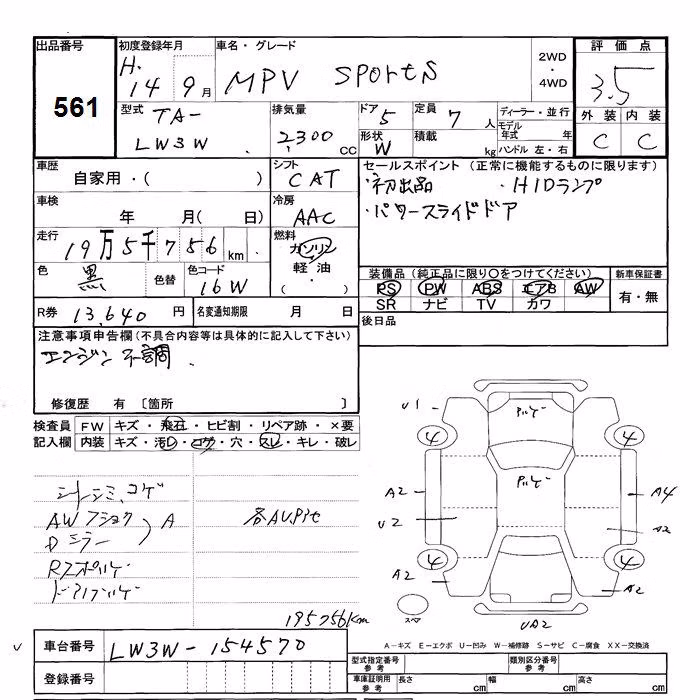 出品番号 初度登録年月 車名・グレード 2WD・4WD 評価点
561 H. 14 9月 MPV SPORTS 3.5
型式 排気量 ドア 定員 ディーラー・並行 外装 内装
TA- LW3W 2,300cc 5 7人 モデル年式 年 C C
形状 W 積載 kg ハンドル 左・右
車歴 シフト セールスポイント (正常に機能するものに限ります)
自家用・( ) CAT ・初出品 ・HIDランプ
車検 冷房 ・パワースライドドア
年 月( 日) AAC
走行 燃料
19万5千756km ガソリン・軽油・( )
色 色替 色コード 装備品 (純正品に限り○をつけてください) 新車保証書
黒 16W PS PW ABS エアB AW 有・無
SR ナビ TV カワ
R券 13,640円 名変通知期限 月 日 後日品
注意事項申告欄 (不具合内容等は具体的に記入して下さい)
エンジン不調.
修復歴 有 〔箇所 〕
検査員記入欄 FW キズ・飛石・ヒビ割・リペア跡・×要
内装 キズ・汚レ・コゲ・穴・スレ・キレ・破レ
シートシミ、コゲ
AWフショク A 各AU.Pit
Dミラー
195756km
U1
4 4
A2 A4
U2 A2
4 4
A2 A2
スペア UA2
車台番号 LW3W-154570
A-キズ E-エクボ U-凹み W-補修跡 S-サビ C-腐食 XX-交換済
登録番号 型式指定番号参考 類別区分番号参考
車庫証明用参考 長さ cm 幅 cm 高さ cm